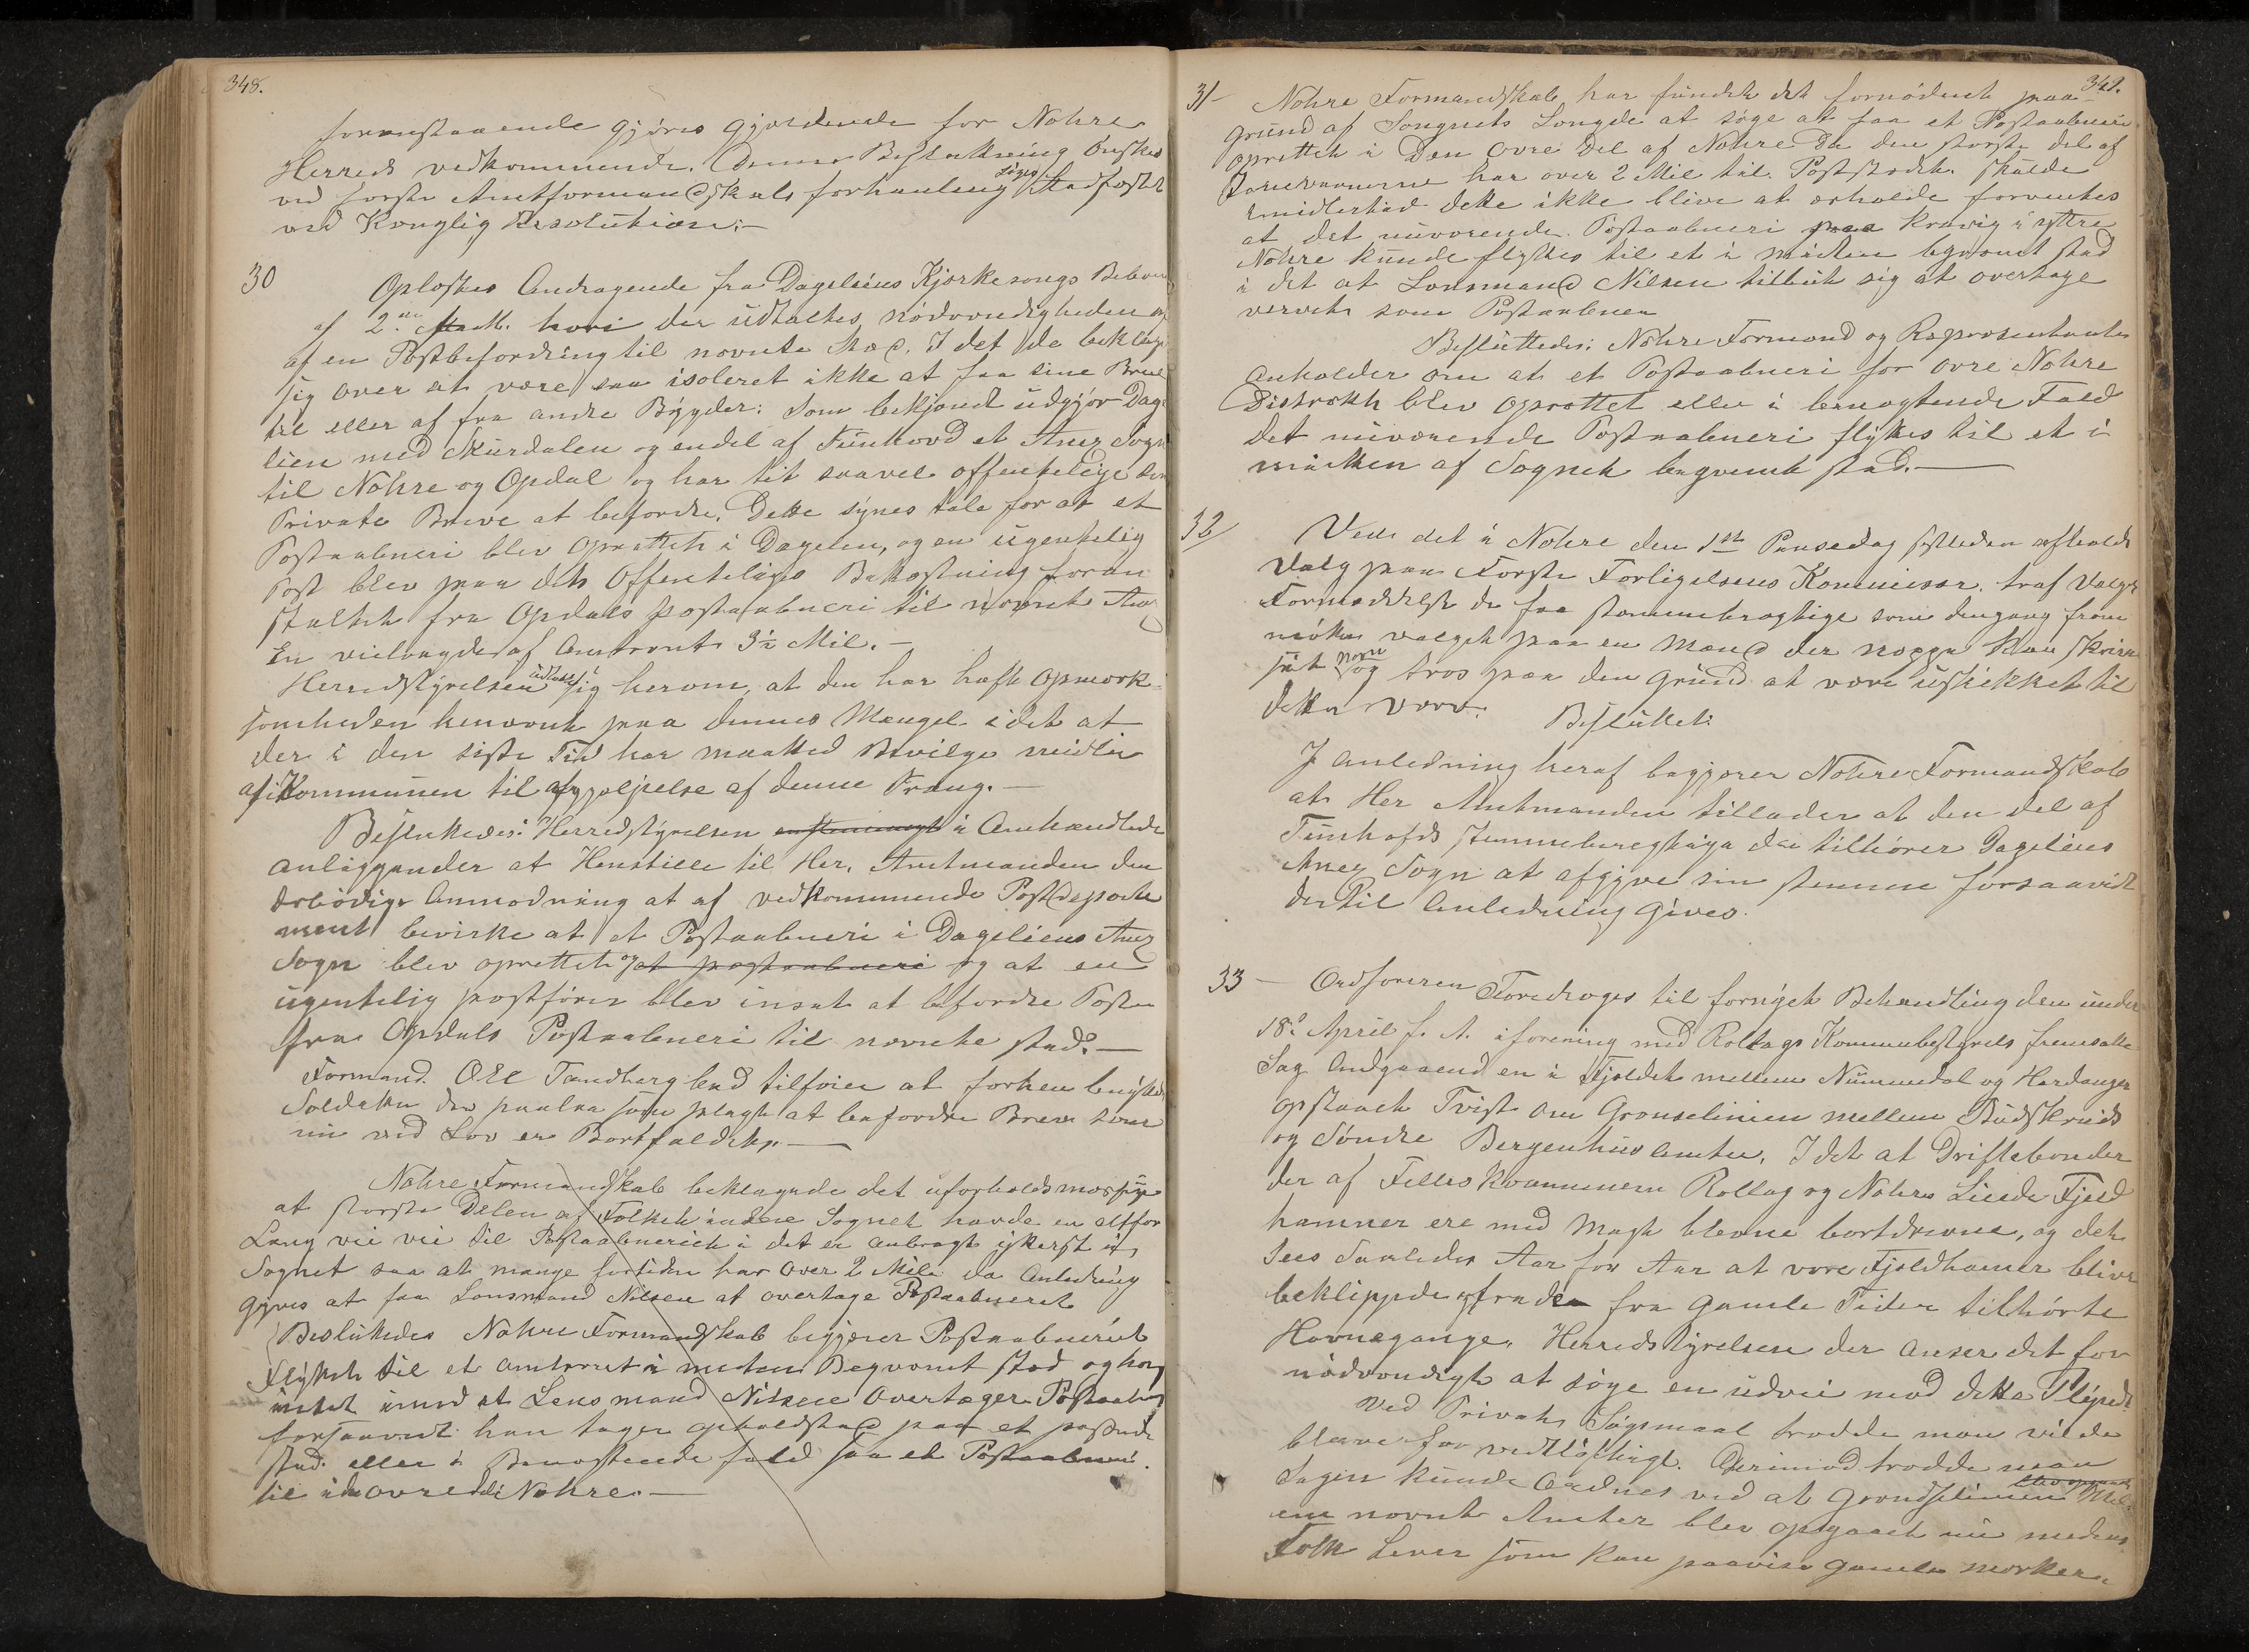 348.
foranstaaende gjøres gjældende for Nohre
Herreds vedkommende. Denne Beslutning Ønskes
ved første Amtformandskabs forhanling søges Stadfæstet
ved Konglig Resolution:-
30
Oplæstes Andragende fra Dagelius Kjørkesongs Beboer
af 2den hvori der udtaltes nødvendigheden af
af en Postbefordring til nævnte Sted. I det de beklage
sig over at være saa isoleret ikke at faa sine Breve
til eller af fra andre Bygder: Som bekjendt udgjør Dage
lien med Skurdalen og endel af Tunhovd et Anex Sogn
til Nohre og Opdal og har tit saavel offentelige som
Private Breve at befordre. Dette synes tale for at et
Postaabneri blev Oprettet i Dagelien, og en ugentelig
Post blev paa det Offenteliges Bekostning foran
staltet fra Opdals postaabneri til nævnte Anex
En vielængde af Omtrent 3½ Mil.-
Herredstyrelsen udtalte sig herom, at den har haft Opmærk-
somheden henvendt paa dennes Mangel idet at
der i den siste Tid har maatted Bevilge midler
af Kommunen til afhjelpelse af denne Trang.-
Besluttedes: Herredstyrelsen enstemmigt i Omhandlede
Anliggender at Henstille til Her. Amtmanden den
ærbødige Anmodning at af vedkommende Postdeparte
ment bevirke at et Postaabneri i Dageliens Anex
Sogn blev oprettet og at postaabneri og at en
ugentelig postfører blev insat at befordre Posten
fra Opdals Postaabneri til nævnte stad.-
Formand. Ole Tandberg bad tilføiet at forhen benyttedes
Soldater der paalaa som plagt at befordre Breve som
nu ved Lov er Bortfaldet.-
Nohre Formandskab beklagede det uforholdsmæssige
at største Delen af Folket i ndre Sognet havde en altfor
Lang vei vei til Postaabneriet i det er anbragt yterst i
Sognet saa at mange har Over 2 Mile da Anledning
gives at faa Lensmand Nilsen at overtage Postaabneriet
Besluttedes Nohre Formandskab begjærer Postaabneriet
Flyttet til et Omtrent i midten Beqvæmt stad og har
intet imod at Lensmand Nilsen Overtager Postaabneri
forsaavidt han tager opholdstad paa et passende
stad. eller i Benægtende fald faa et Postaabneri.
til i den øvre del Nohre.-
349.
31- Nohre Formandskab har fundet det fornødent paa
grund af Songnets Længde at søge at faa et Postaabneri
oprettet i Den Øvre Del af Nohre Da den største del af
har over 2 Mil til. Poststedet. Skulde
Emidlertid dette ikke blive at erholde forventes
at det nuværende. Postaabneri paa Kravig i yttre
Nohre kunde flyttes til et i midten beqvemt stad
i det at Lensmand Nilsen tilbüt sig at overtage
vervet som Postaabner
Besluttedes: Nohre Formand og Repræsentanter
anholder om at et Postaabneri for Øvre Nohre
Distrækt blev Oprettet eller i benægtende Fald
Det nuværende Postaabneri flyttes til et i
midten af Sognet beqvemt stad.-
32/ Ved det i Nohre den 1ste Pinsedag sistleden afholdt
Valg paa Første Forligelsens Kommisær. traf Valget
Formedelst de faa stemmebrægtige som dengang frem
møtte valget paa en Mand der neppe Kan skrive
sit navn og tros paa den grund at være uskikket til
dette værv. Besluttet:
I Anledning heraf begjærer Nohre Formandskab
at Her Amtmanden tillader at den del af
Tunhofds stemmeberegtiga der tilhører Dageliens
Anex Sogn at afgjve sin stemme forsaavidt
dertil Anledning gives.
33 - Ordføreren Foredroges til fornyet Behandling den under
18de April f. A. i forening med Rollags Kommubestyrels fremsatte
Sag Andgaaend en i Fjeldet mellem Nummedal og Hardanger
opstaaet Tvist om Grænselinien mellem Budskruds
og Søndre Bergenhus Amter. I det at Driftebønder
der af Felleskvammem Rollag og Nohre Leiede Fjeld
hamner ere med Magt blevne bortdrevne, og det
sees saaledes Aar for Aar at vore Fjeldhamner blive
beklippede fra den fra gamle Tider tilhørte
Havnegange. Herredstyrelsen der anser det for
nødvendigt at søge en udvei mod dette
Ved Privat Søgsmaal trodde man vilde
bleve for vidtløftigt. Derimod trodde man
Sagen kunde Ordnes ved at Grændselinien blev opgaaet Mel-
em nævnte Amter blev opgaaet nu medens
Folk Lever som kan paavise gamle mærker.